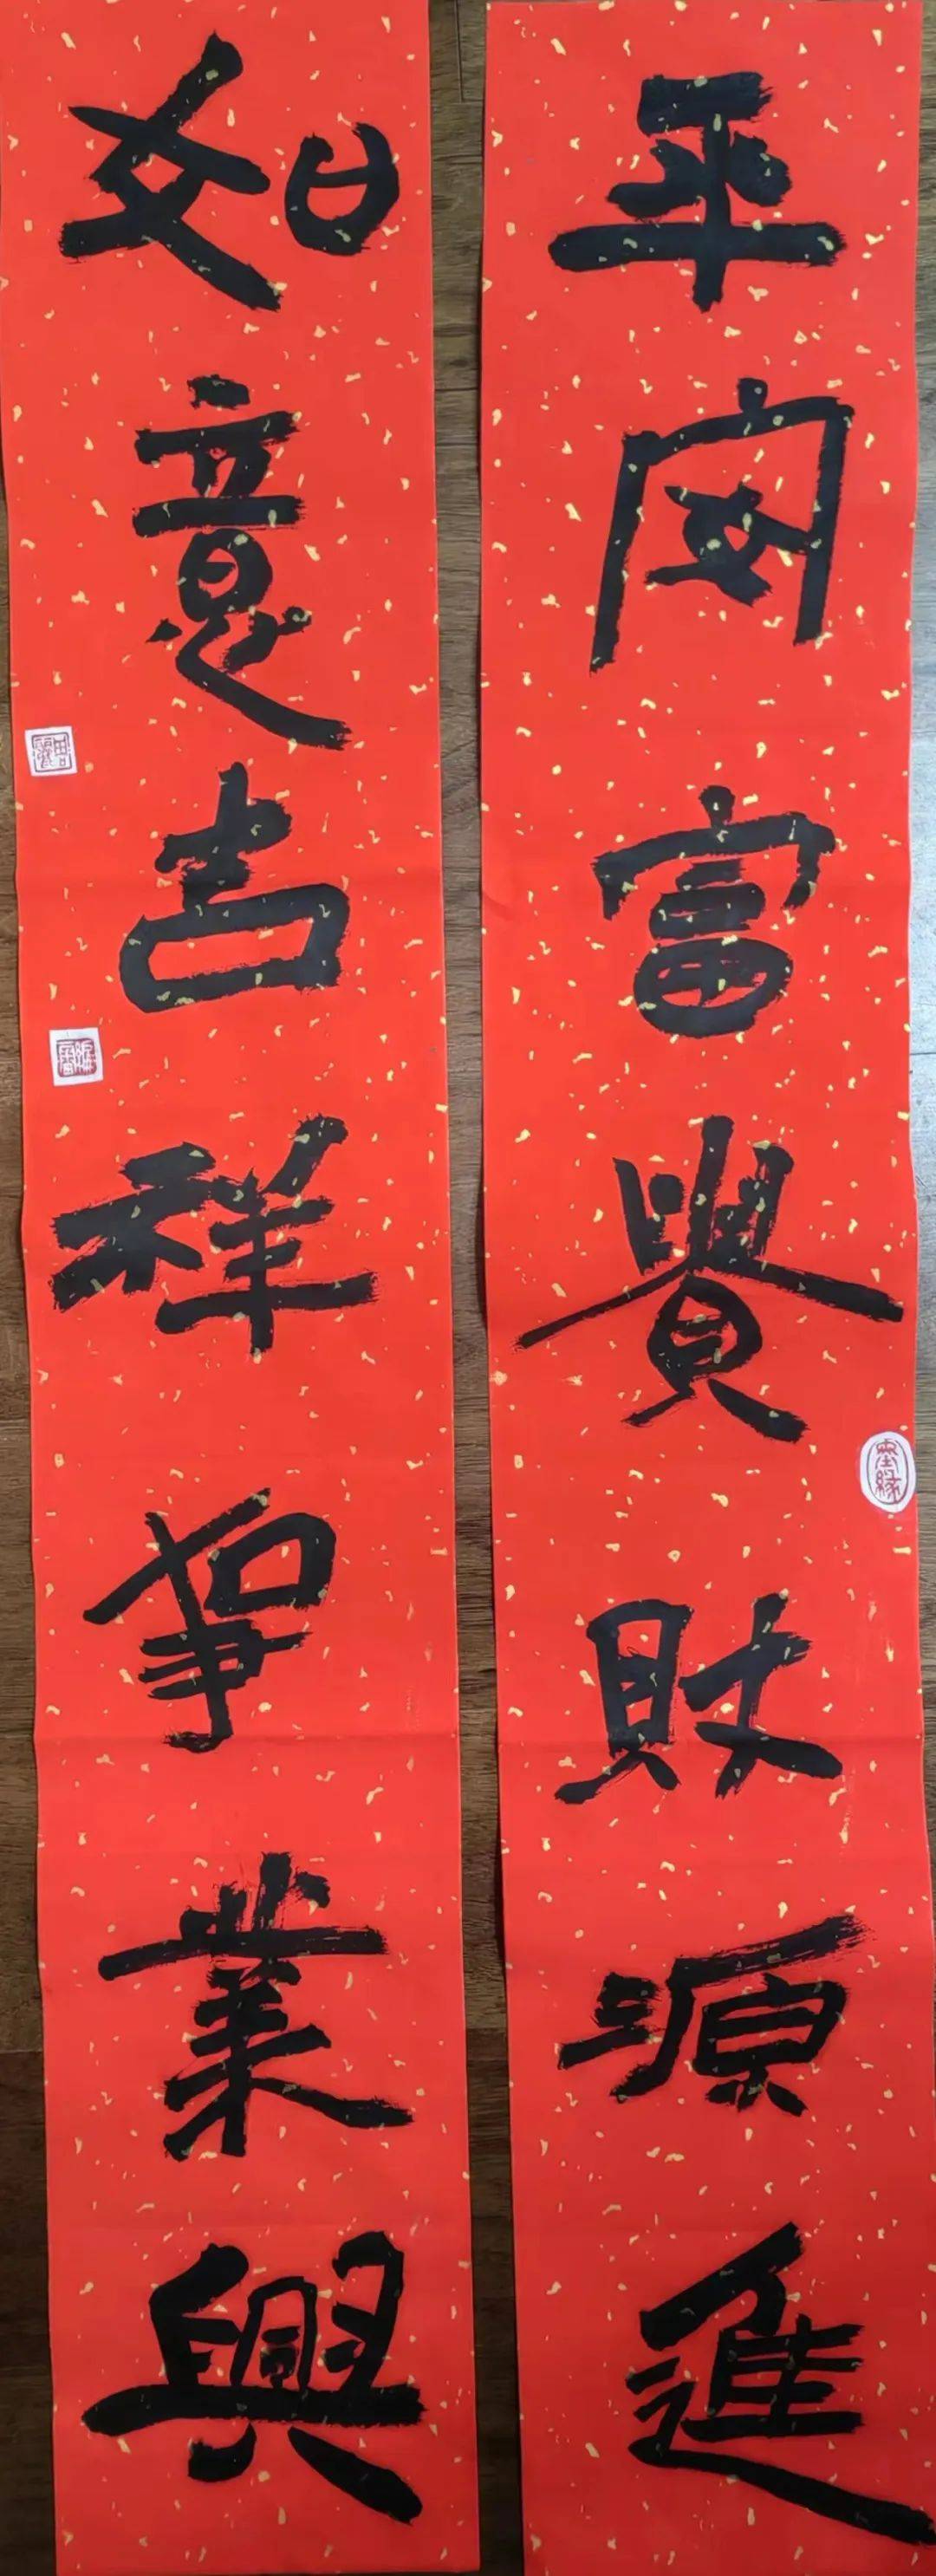 平安富貴財源進
如意吉祥事業興
墨緣